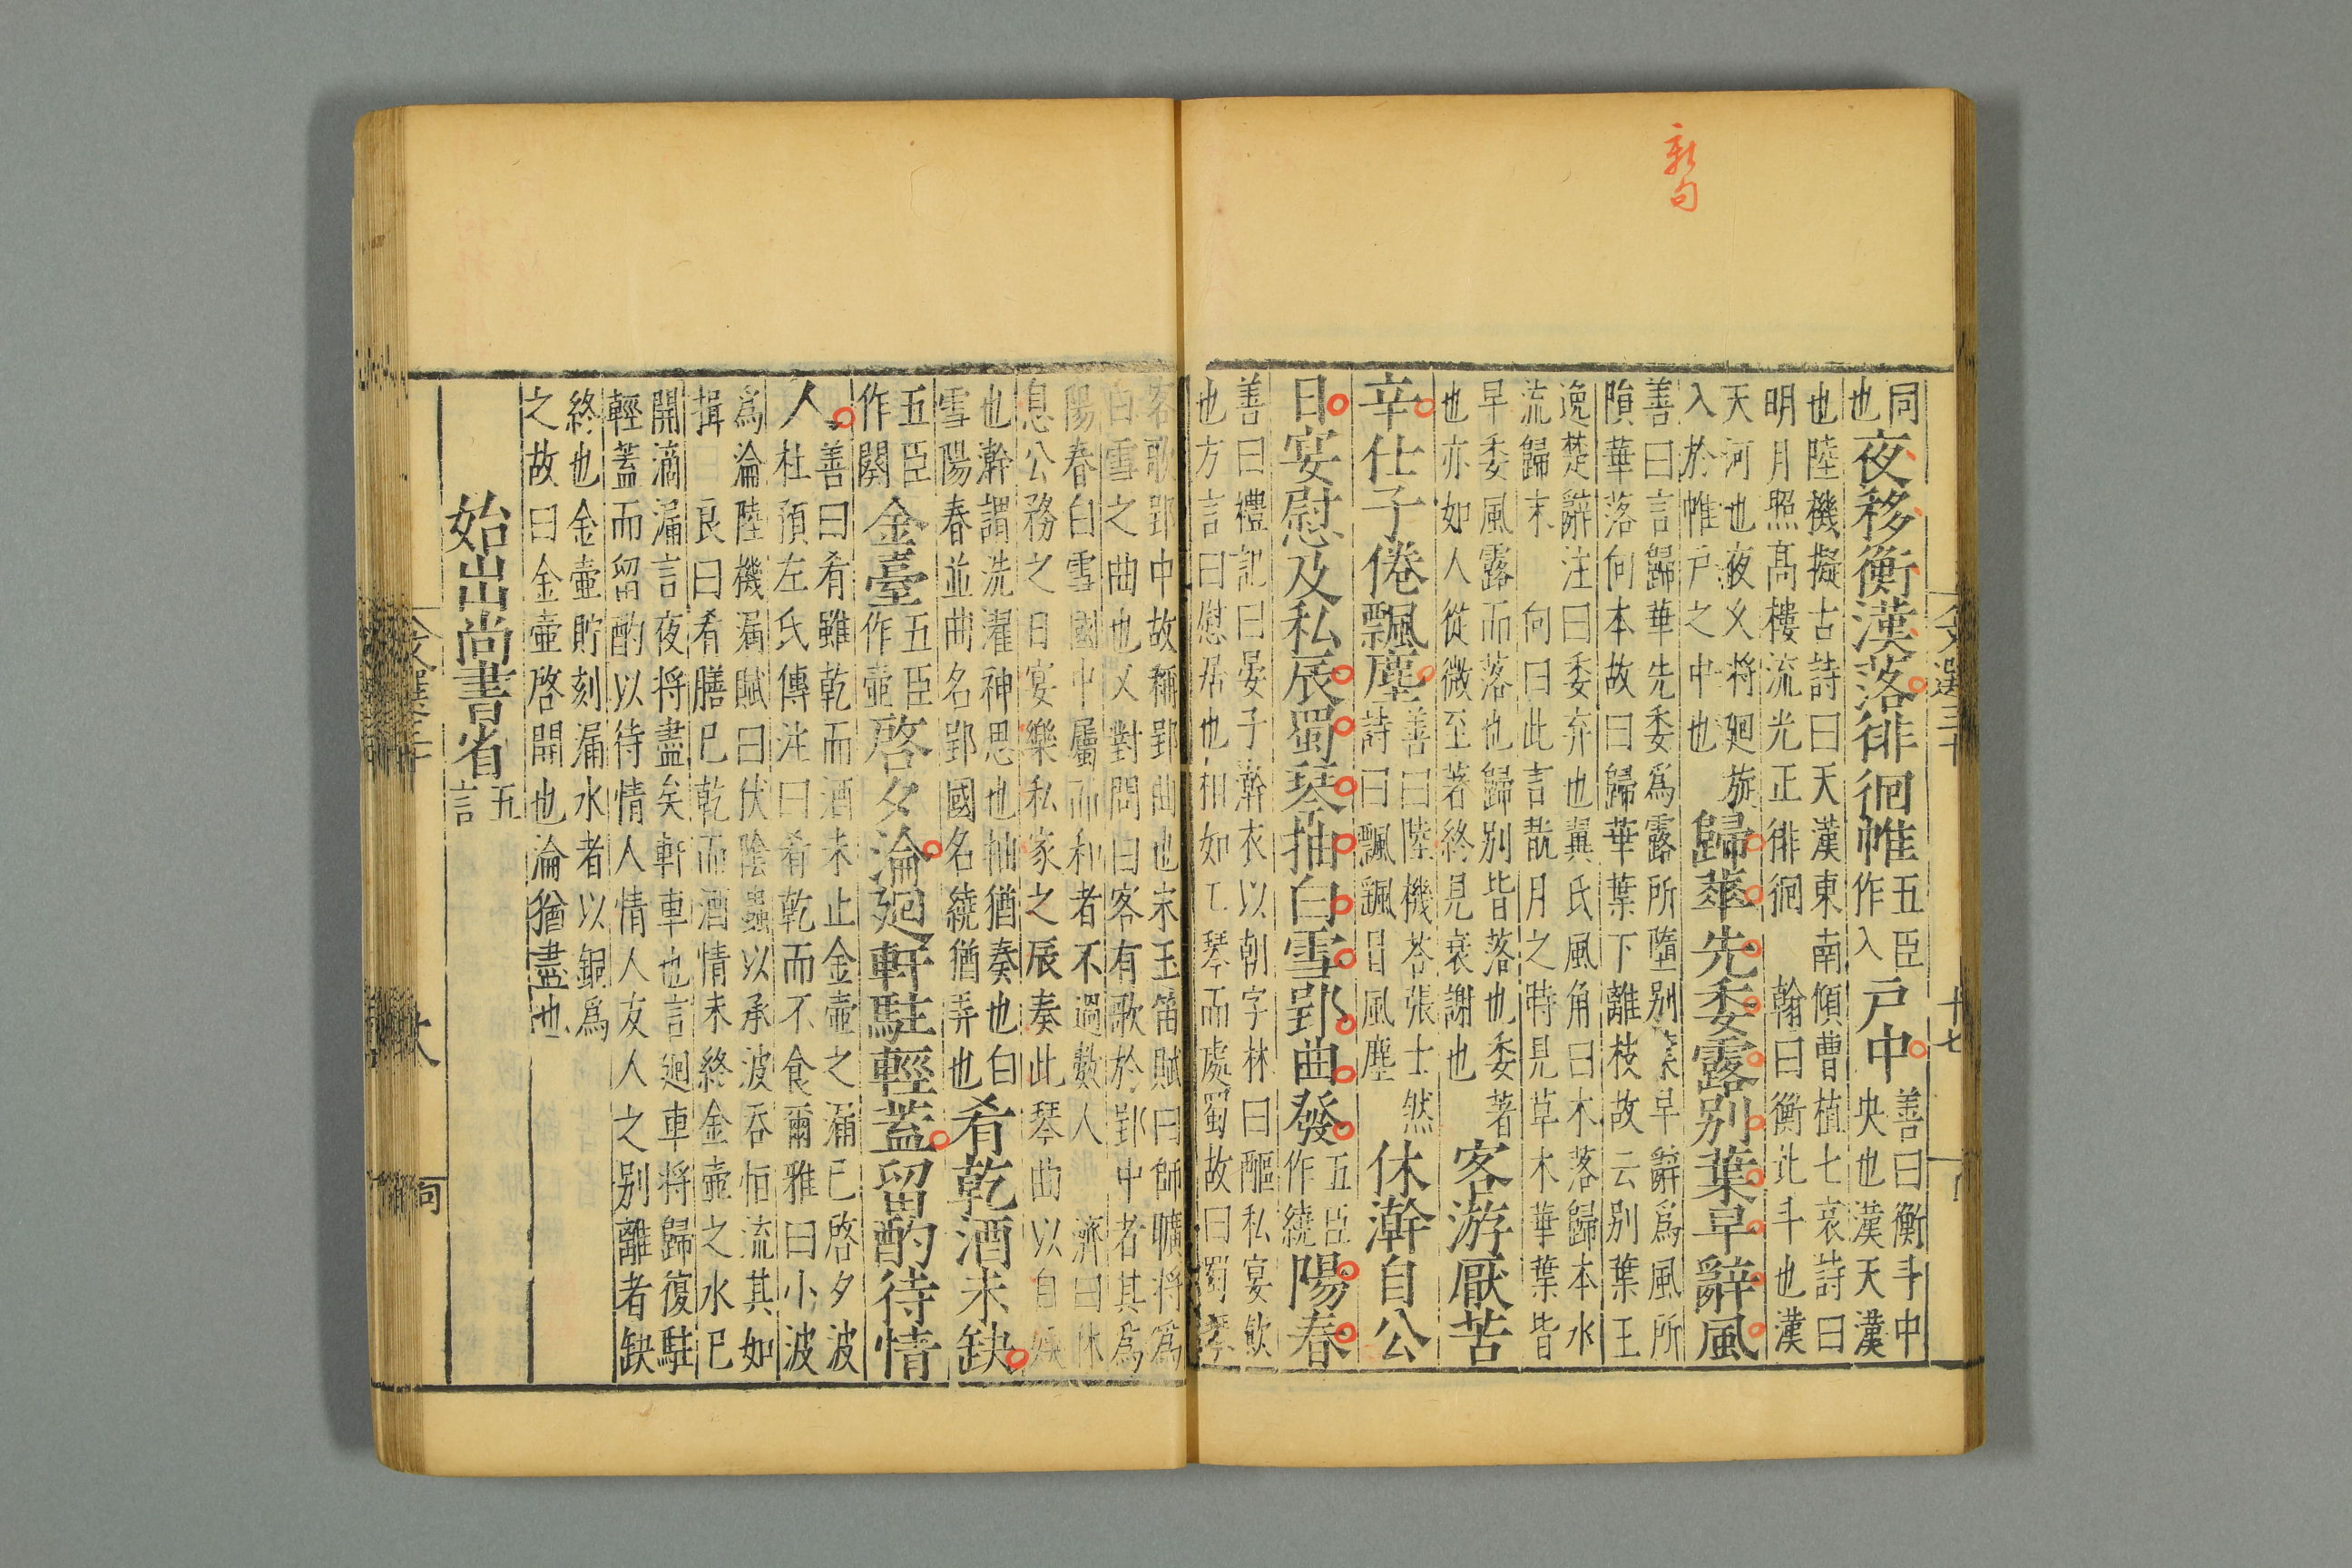 新句
同
也
夜移衡漢落徘徊帷
五臣
作入
戶中
善曰衡斗中
央也漢天漢
也陸機擬古詩曰天漢東南傾曹植七哀詩曰
明月照高樓流光正徘徊 翰曰衡北斗也漢
天河也夜久將廻旋
入於帷戶之中也
歸華先委露別葉早辭風
善曰言歸華先委爲露所墮別葉早辭爲風所
隕華落向本故曰歸華葉下離枝故云別葉王
逸楚辭注曰委弃也翼氏風角曰木落歸本水
流歸末 向曰此言翫月之時見草木華葉皆
早委風露而落也歸別皆落也委著
也亦如人從微至著終見衰謝也
客游厭苦
辛仕子倦飄塵
善曰陸機荅張士然
詩曰飄飄冒風塵
休澣自公
日宴慰及私辰蜀琴抽白雪郢曲發
五臣
作繞
陽春
善曰禮記曰晏子澣衣以朝字林曰醧私宴飲
也方言曰慰居也相如工琴而處蜀故曰蜀琴
客歌郢中故稱郢曲也宋玉笛賦曰師曠將爲
白雪之曲也又對問曰客有歌於郢中者其爲
陽春白雪國中屬而和者不過數人 濟曰休
息公務之日宴樂私家之辰奏此琴曲以自娛
也澣謂洗濯神思也抽猶奏也白
雪陽春並曲名郢國名繞猶弄也
肴乾酒未缺
五臣
作闋
金臺
五臣
作壺
啓夕淪廻軒駐輕蓋留酌待情
人
善曰肴雖乾而酒未止金壺之漏已啓夕波
杜預左氏傳注曰肴乾而不食爾雅曰小波
爲淪陸機漏賦曰伏陰蟲以承波吞恒流其如
揖 良曰肴膳已乾而酒情未終金壺之水已
開滴漏言夜將盡矣軒車也言廻車將歸復駐
輕蓋而留酌以待情人情人友人之別離者缺
終也金壺貯刻漏水者以銅爲
之故曰金壺啓開也淪猶盡也
始出尚書省
五
言